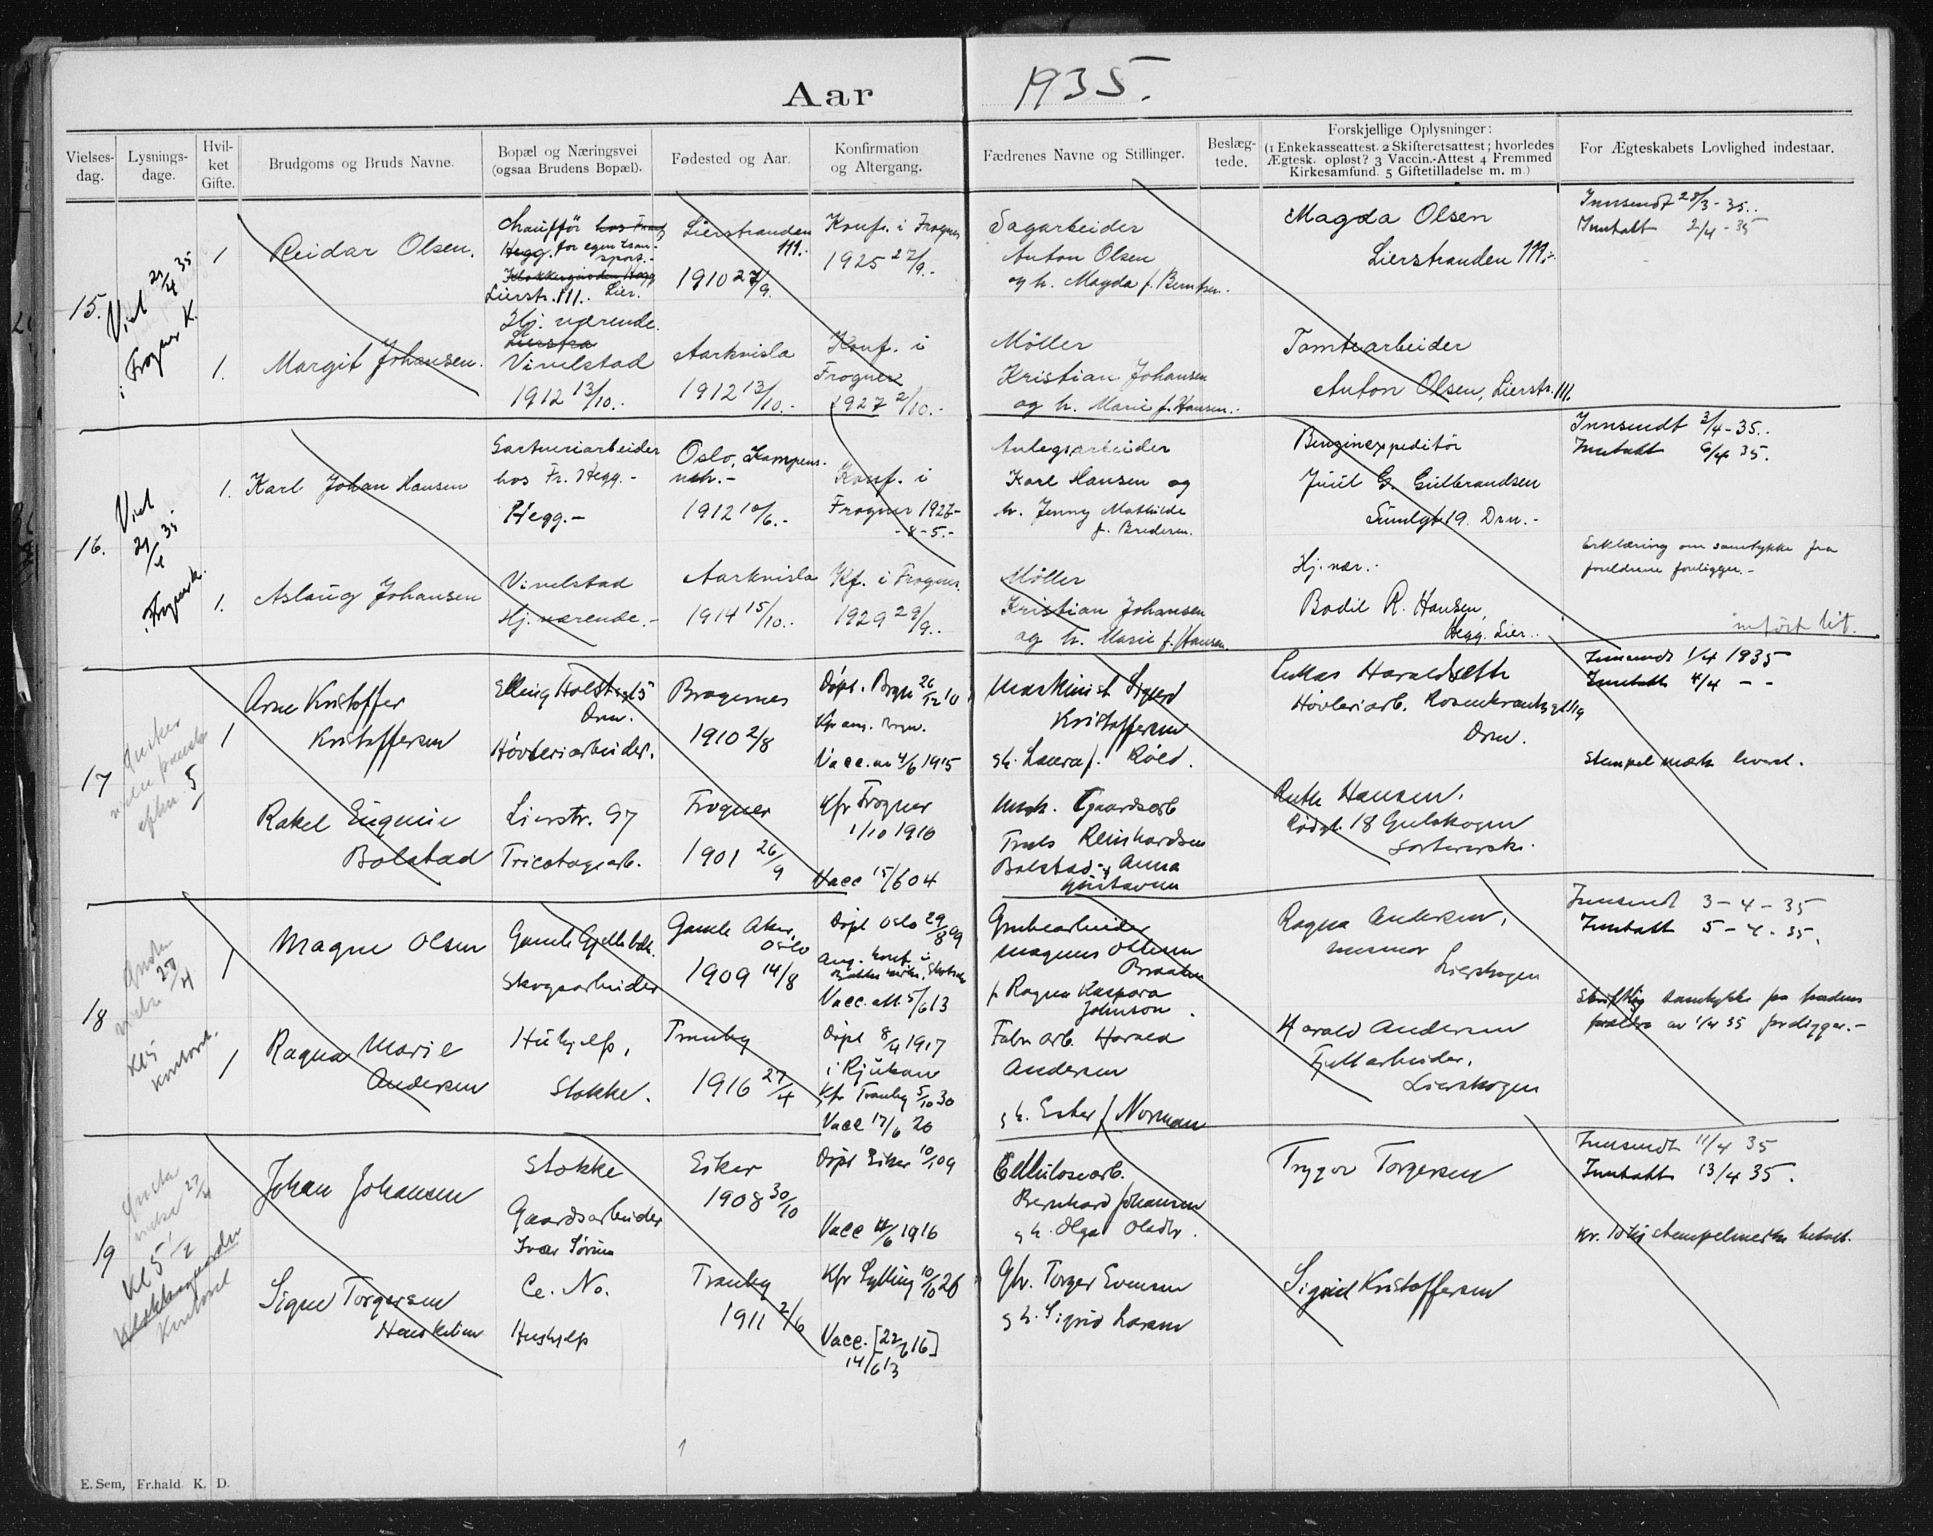 Aar 1935.
Vielses-dag.
Lysnings-dage.
Hvil-ket Gifte.
Brudgoms og Bruds Navne.
Bopæl og Næringsvei
(ogsaa Brudens Bopæl).
Fødested og Aar.
Konfirmation
og Altergang.
Fædrenes Navne og Stillinger.
Beslæg-tede.
Forskjellige Oplysninger:
(1 Enkekasseattest. 2 Skifteretsattest; hvorledes
Ægtesk. opløst? 3 Vaccin.-Attest 4 Fremmed
Kirkesamfund. 5 Giftetilladelse m. m.)
For Ægteskabets Lovlighed indestaar.
15.
Viet 27/4 35
i Frogner K.
1
Reidar Olsen.
Chauffør hos
Hegg. for egen tran-
sport.-
Lierstr. 111. Lier.
Lierstranden
111.
1910 27/9.
Konf. i Frogner
1925 27/9.-
Sagarbeider
Anton Olsen
og h. Magda f. Berntsen.
Magda Olsen
Lierstranden 111.-
Innsendt 28/3-35.
Inntatt 2/4-35
1.
Margit Johansen.
Hj. værende.
Lierstra
Vivelstad
1912 13/10.-
Aarkvisla
1912 13/10.-
Konf. i
Frogner
1927 2/10.-
Møller
Kristian Johansen
og h. Marie f. Hansen.-
Tomtearbeider
Anton Olsen, Lierstr. 111.
16.
Viet
Frognerk.
1.
Karl Johan Hansen
Gartneriarbeider
hos Fr. Hegg.-
Hegg.-
Oslo, Kampens
1912 10/6.-
Konf. i
Frogner 1927-
-8-5.-
Anlegsarbeider
Karl Hansen og
h. Jenny Mathilde
f. Bredesen.
Benzinexpeditør
Juul G. Gulbrandsen
19. Drn.-
Innsendt 3/4-35.
Inntatt 6/4 35.
1.
Aslaug Johansen
Vivelstad
Hj. værende.-
Aarkvisla
1914 15/10.-
Kf. i Frogner
1929 29/9.-
Møller
Kristian Johansen
og h. Marie f. Hansen.
Hj. vær.-
Bodil R. Hansen,
Hegg. Lier.
Erklæring om samtykke fra
foreldrene foreligger.-
17
1
Arne Kristoffer
Kristoffersen
Elling Holsts gt 5
Drm.
Høvleriarbeider.
Bragernes
1910 2/8
Døpt. Bragn 26/12 10
Kfr ang. Bragn.
Vacc. att 4/6 1915
Maskinist Sigurd
Kristoffersen
g h. Laura f. Røed.
Lukas Haraldseth
Høvleriarb. Rosenkrantzgt
Drm.
Innsendt 1/4 1935
Inntatt 4/4 - -
Stempelmerke levert.
Rakel Eugenie
Bolstad
Lierstr. 97
Tricotagearb.
Frogner
1901 26/9
Kfr Frogner
1/10 1916
Vacc 15/6 04
Gaardsarb
Truls Reinhardsen
Bolstad - Anna
Gustavsen
Ruth Hansen.
18 Gulskogen
18
1
Magne Olsen
Gamle Gjellebek.
Skogsarbeider
Gamle Aker,
Oslo
1909 14/8
Døpt Oslo 29/8 09
Vacc. att. 5/6 13
Grubearbeider
Magnus Olsen
Braaten
f Ragna Kaspara
Johnson.
Ragna Andersen,
Lierskogen
Innsendt 3-4-35
Inntatt 5-4-35.
Skriftlig samtykke fra brudens
foreldre av 1/4 35 foreligger.-
1
Ragna Marie
Andersen
Hushjelp,
Stokke.
Tranby
1916 27/4
Døpt 8/4 1917
i Rjukan
Kfr Tranby 5/10 30
Vacc 17/6 20
Fabr arb. Harald
Andersen
g h. Ester f Norman
Harald Andersen
Fjellarbeider,
Lierskogen
19
Johan Johansen
Stokke
Gaardsarbeider
Ivar Sørum
Eiker
1908 30/10
Døpt Eiker 10/1 09
Vacc 4/6 1916
Cellulosearb.
Bernhard Johansen
g h. Olga Olsdtr.
Trygve Torgersen
Innsendt 11/4 35
Inntatt 13/4 35.
stempelmerke betalt.
Signe Torgersen
Ce. No.
Hushjelp
Tranby
1911 2/6
Kfr Sylling 10/10 26
Vacc. [22/6 16]
14/6 13
Torger Evensen
g h. Sigrid Larsen
Sigrid Kristoffersen
E. Sem, Fr.hald K. D.